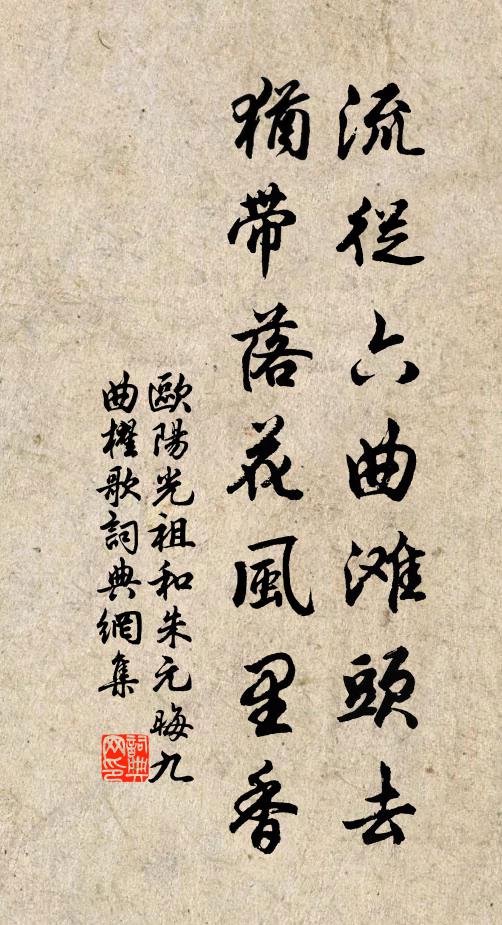 流從六曲滩頭去
猶带落花風里香
歐陽光祖和朱元晦九
曲櫂歌詞典網集
詞典
网印